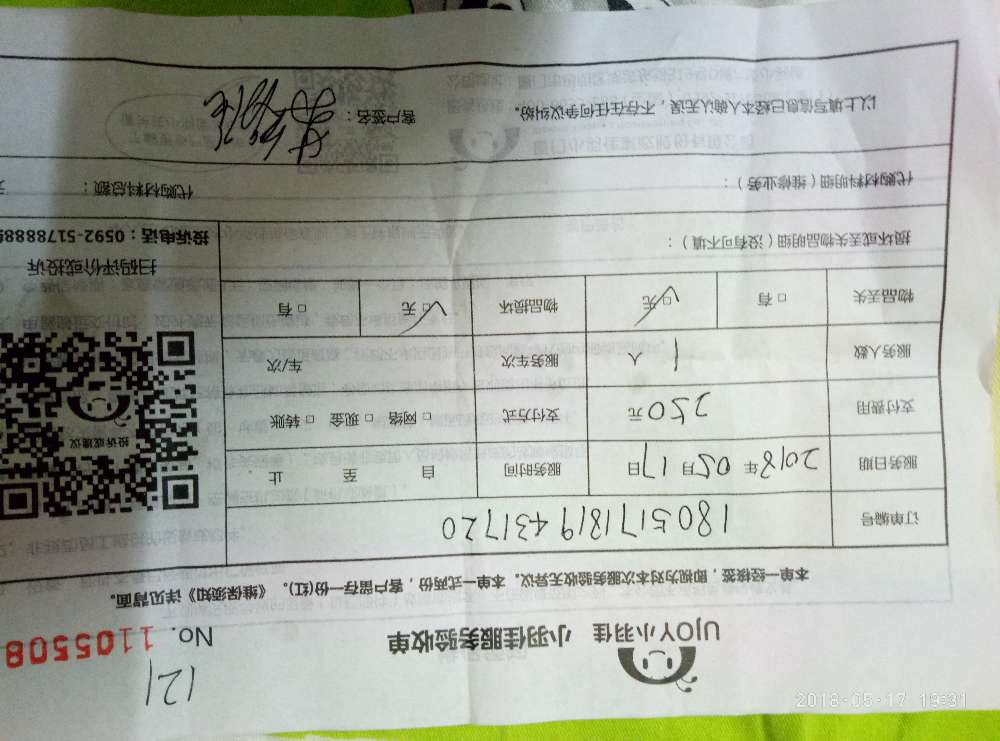 121
UJOY小羽佳 小羽佳服务验收单 No. 1105508
本单一经核签，即视为对本次服务验收无异议。本单一式两份，客户留存一份(红)。《维保须知》详见背面。
订单编号 1805171819431720
服务日期 2018年05月17日 服务时间 自 至 止
支付费用 250元 支付方式 □ 网络 □ 现金 □ 转账
服务人数 1 人 服务车次 车/次
物品丢失 □ 有 □ 无 物品损坏 □ 无 □ 有
投诉或建议
扫码评价或投诉
投诉电话：0592-5178888
损坏或丢失物品明细（没有可不填）：
代购材料明细（维修业务）： 代购材料总额：
以上填写信息已经本人确认无误，不存在任何争议纠纷。 客户签名：
2018-05-17 19:31